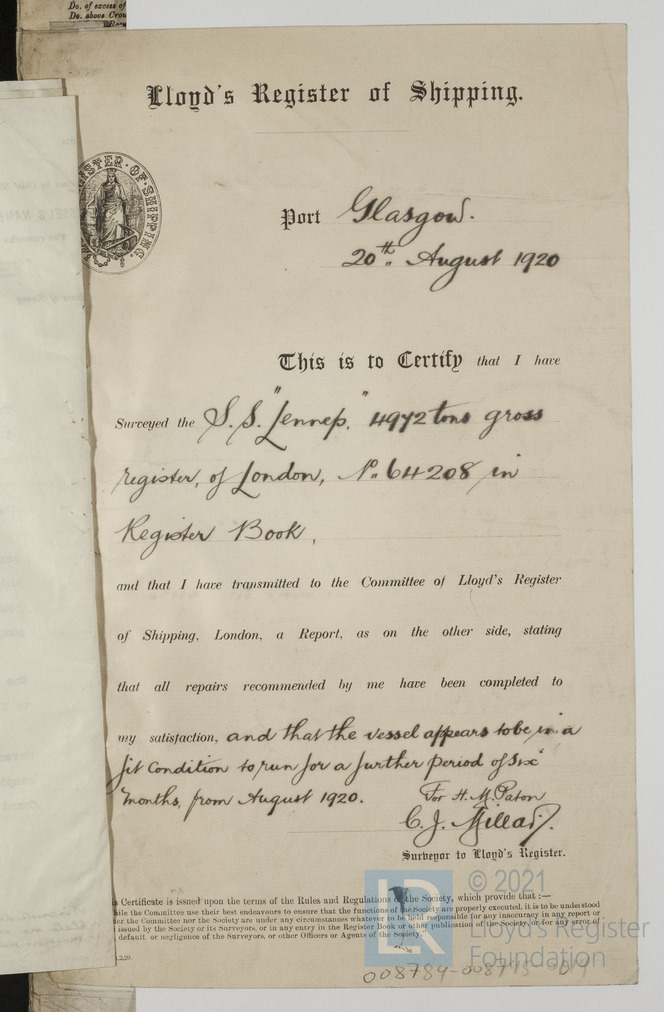 Do. of excess of
Do. above Crow
Lloyd's Register of Shipping.
ISTER·OF·SHIPPING.
Port Glasgow.
20th August 1920
This is to Certify that I have
Surveyed the S.S. "Lennep," 4972 tons gross
register, of London, No. 64208 in
Register Book,
and that I have transmitted to the Committee of Lloyd's Register
of Shipping, London, a Report, as on the other side, stating
that all repairs recommended by me have been completed to
my satisfaction, and that the vessel appears to be in a
fit condition to run for a further period of six
months, from August 1920.
For H. M. Paton
C. J. Millar.
Surveyor to Lloyd's Register.
Certificate is issued upon the terms of the Rules and Regulations of the Society, which provide that :—
ile the Committee use their best endeavours to ensure that the functions of the Society are properly executed, it is to be understood
er the Committee nor the Society are under any circumstances whatever to be held responsible for any inaccuracy in any report or
issued by the Society or its Surveyors, or in any entry in the Register Book or other publication of the Society, or for any error of
default or negligence of the Surveyors, or other Officers or Agents of the Society."
.2.20.
© 2021
LR
Lloyd's Register
Foundation
008784-008795-0019